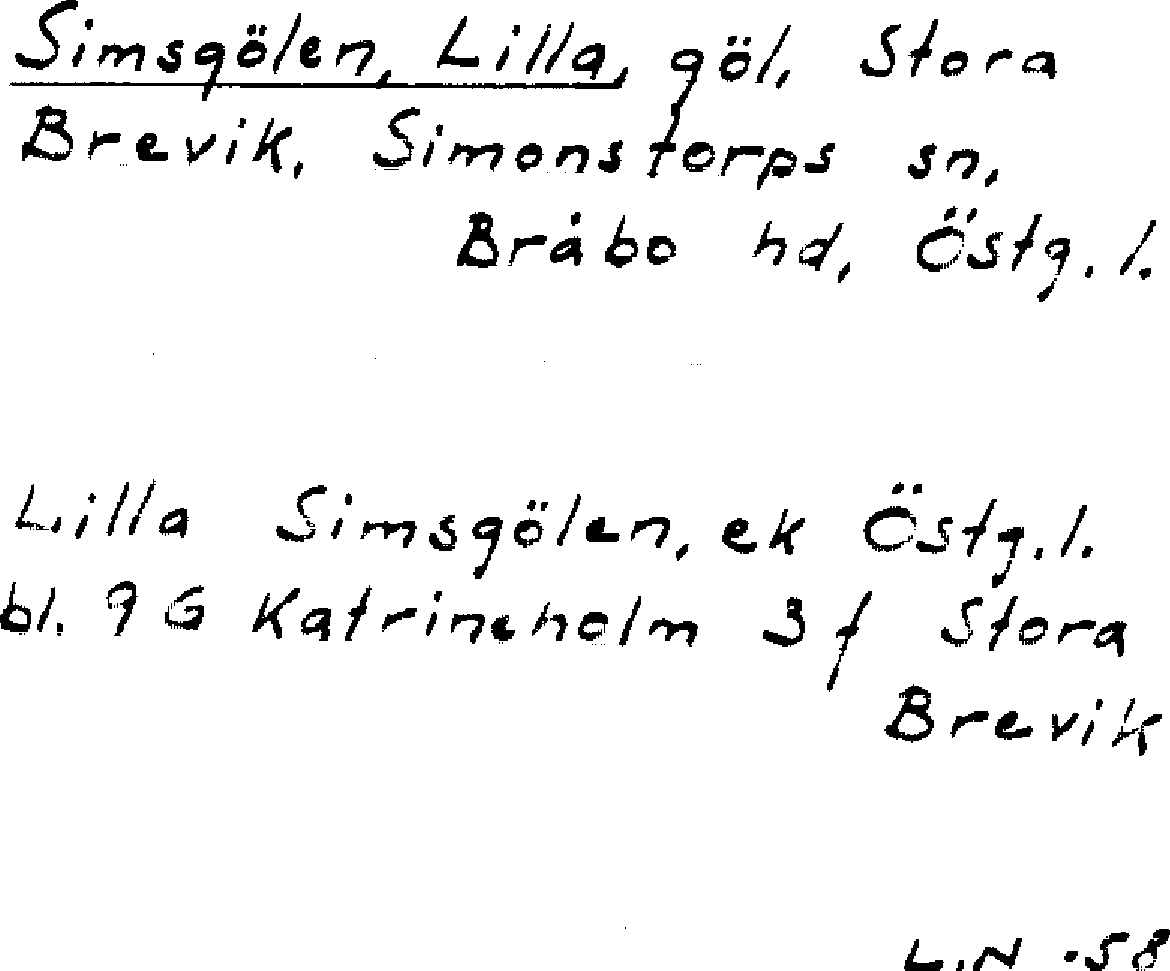 Simsgölen, Lilla, göl, Stora
Brevik, Simonstorps sn,
Bråbo hd, Östg. l.
Lilla Simsgölen, ek Östg. l.
bl. 9 G Katrineholm 3 f Stora
Brevik
L.N -58